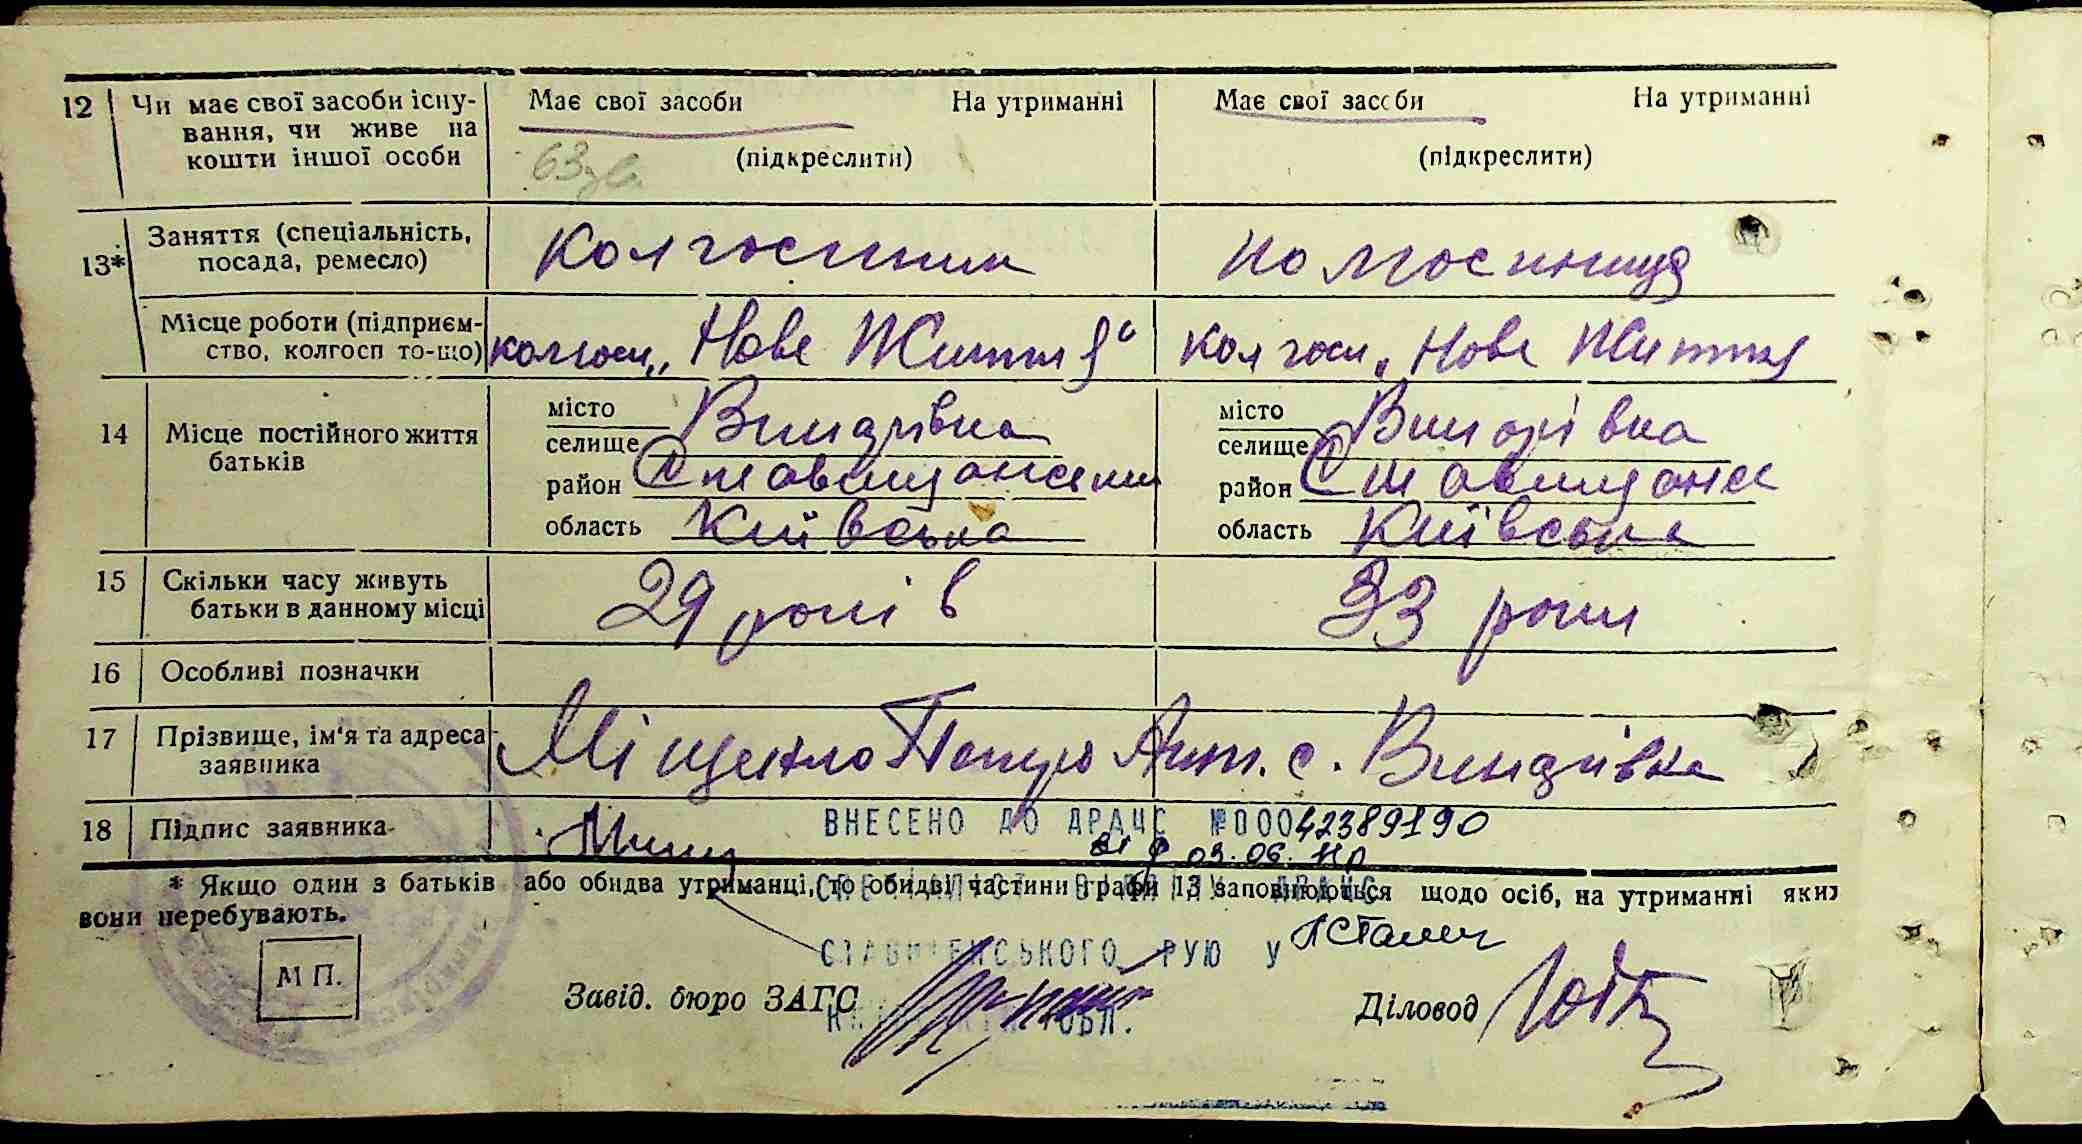 12 Чи має свої засоби існу- Має свої засоби На утриманні Має свої засоби На утриманні
вання, чи живе на
кошти іншої особи (підкреслити) (підкреслити)
13* Заняття (спеціальність, колгоспник колгоспниця
посада, ремесло)
Місце роботи (підприєм- колгосп „Нове Життя“ колгосп „Нове Життя
ство, колгосп то-що)
14 Місце постійного життя місто місто
батьків селище Винарівка селище Винарівка
район район
область Київська область Київська
15 Скільки часу живуть 29 років 33 роки
батьки в данному місці
16 Особливі позначки
17 Прізвище, ім'я та адреса Міщенко Петро Ант. с. Винарівка
заявника
18 Підпис заявника
ВНЕСЕНО ДО ДРАЦС №00042389190
від 03.06.
* Якщо один з батьків або обидва утриманці, то обидві частини графи 13 заповнюються щодо осіб, на утриманні яких
вони перебувають.
СТАВИЩЕНСЬКОГО РУЮ У
М П. Завід. бюро ЗАГС Діловод
ОБЛ.